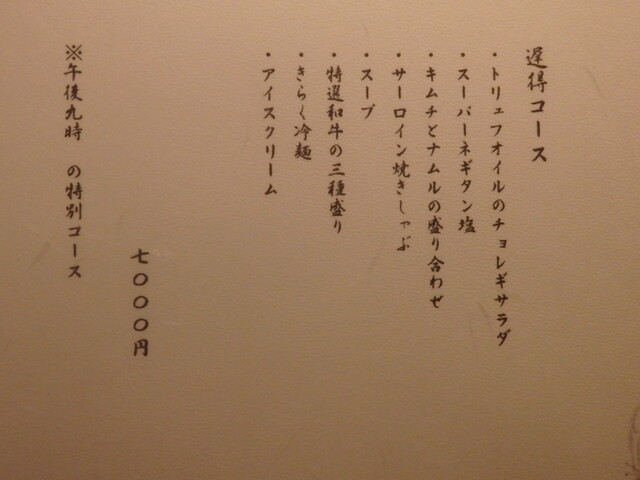 遅得コース
・トリュフオイルのチョレギサラダ
・スーパーネギタン塩
・キムチとナムルの盛り合わせ
・サーロイン焼きしゃぶ
・スープ
・特選和牛の三種盛り
・きらく冷麺
・アイスクリーム
七〇〇〇円
※午後九時 の特別コース